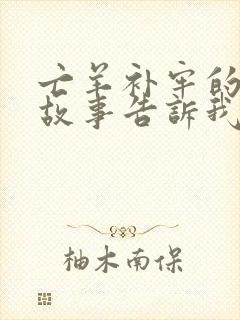 亡羊补牢的
故事告訴我
柚木南保